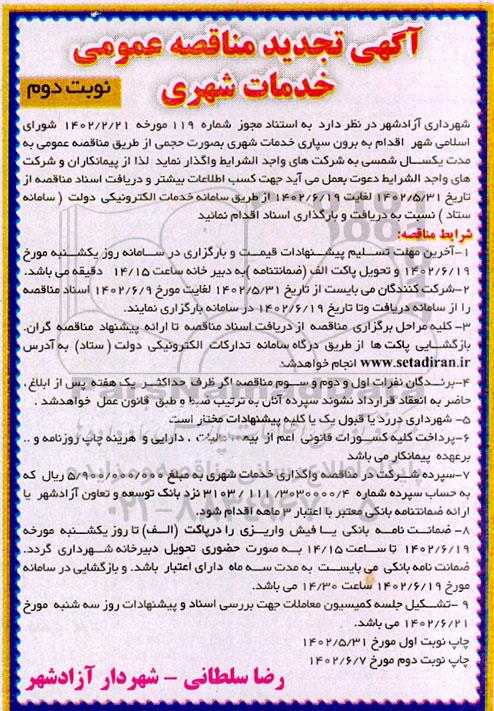 آگهی تجدید مناقصه عمومی
خدمات شهری
نوبت دوم
شهرداری آزادشهر در نظر دارد به استناد مجوز شماره ۱۱۹ مورخه ۱۴۰۲/۲/۲۱ شورای
اسلامی شهر اقدام به برون سپاری خدمات شهری بصورت حجمی از طریق مناقصه عمومی به
مدت یکسال شمسی به شرکت های واجد الشرایط واگذار نماید لذا از پیمانکاران و شرکت
های واجد الشرایط دعوت بعمل می آید جهت کسب اطلاعات بیشتر و دریافت اسناد مناقصه از
تاریخ ۱۴۰۲/۵/۳۱ لغایت ۱۴۰۲/۶/۱۹ از طریق سامانه خدمات الکترونیکی دولت ( سامانه
ستاد ) نسبت به دریافت و بارگذاری اسناد اقدام نمائید
شرایط مناقصه:
۱-آخرین مهلت تسلیم پیشنهادات قیمت و بارگزاری در سامانه روز یکشنبه مورخ
۱۴۰۲/۶/۱۹ و تحویل پاکت الف (ضمانتنامه )به دبیر خانه ساعت ۱۴/۱۵ دقیقه می باشد.
۲-شرکت کنندگان می بایست از تاریخ ۱۴۰۲/۵/۳۱ لغایت مورخ ۱۴۰۲/۶/۹ اسناد مناقصه
را از سامانه دریافت وتا تاریخ ۱۴۰۲/۶/۱۹ در سامانه بارگزاری نمایند.
۳- کلیه مراحل برگزاری مناقصه از دریافت اسناد مناقصه تا ارائه پیشنهاد مناقصه گران.
بازگشایی پاکت ها از طریق درگاه سامانه تدارکات الکترونیکی دولت ( ستاد ) به آدرس
www.setadiran.ir انجام خواهدشد
۴-برندگان نفرات اول و دوم و سوم مناقصه اگر ظرف حداکثر یک هفته پس از ابلاغ ,
حاضر به انعقاد قرارداد نشوند سپرده آنان به ترتیب ضبط و طبق قانون عمل خواهدشد .
۵- شهرداری دررد یا قبول یک یا کلیه پیشنهادات مختار است
۶-پرداخت کلیه کسورات قانونی اعم از بیمه مالیات ، دارایی و هزینه چاپ روزنامه و ..
برعهده پیمانکار می باشد
۷-سپرده شرکت در مناقصه واگذاری خدمات شهری به مبلغ ۵/۹۰۰/۰۰۰/۰۰۰ ریال که
به حساب سپرده شماره ۳۱۰۳/۱۱۱/۳۰۳۰۰۰۰/۴ نزد بانک توسعه و تعاون آزادشهر یا
ارائه ضمانتنامه بانکی معتبر با اعتبار ۳ ماهه اقدام شود.
۸- ضمانت نامه بانکی یا فیش واریزی را درپاکت (الف) تا روز یکشنبه مورخه
۱۴۰۲/۶/۱۹ تا ساعت ۱۴/۱۵ به صورت حضوری تحویل دبیرخانه شهرداری گردد.
ضمانت نامه بانکی می بایست به مدت سه ماه دارای اعتبار باشد. و بازگشایی در سامانه
مورخ ۱۴۰۲/۶/۱۹ ساعت ۱۴/۳۰ می باشد.
۹ -تشکیل جلسه کمیسیون معاملات جهت بررسی اسناد و پیشنهادات روز سه شنبه مورخ
۱۴۰۲/۶/۲۱ می باشد.
چاپ نوبت اول مورخ ۱۴۰۲/۵/۳۱
چاپ نوبت دوم مورخ ۱۴۰۲/۶/۷
رضا سلطانی - شهردار آزادشهر